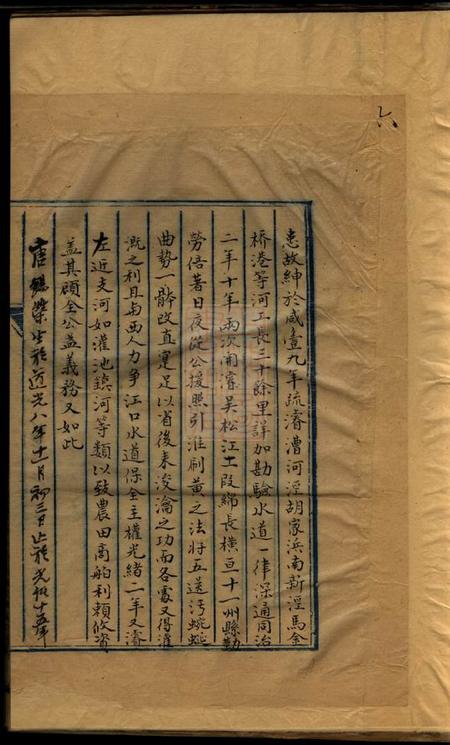 六
患故紳於咸豐九年疏濬漕河涇胡家浜南新涇馬金
橋港等河工長三十餘里詳加勘驗水道一律深通同治
二年十年兩次開濬吳松江土段綿長橫亘十一州縣勤
勞倍著日夜從公援照引淮刷黃之法將五送污蜿蜒
曲勢一體改直寔足以省後來浚淪之功而各處又得灌
溉之利且與西人力爭江口水道保全主權光緒二年又濬
左近支河如灌池鎮河等類以致農田商舶利賴攸資
蓋其顧全公益義務又如此
唐 榮生於道光八年十一月初三日止於光 十五年